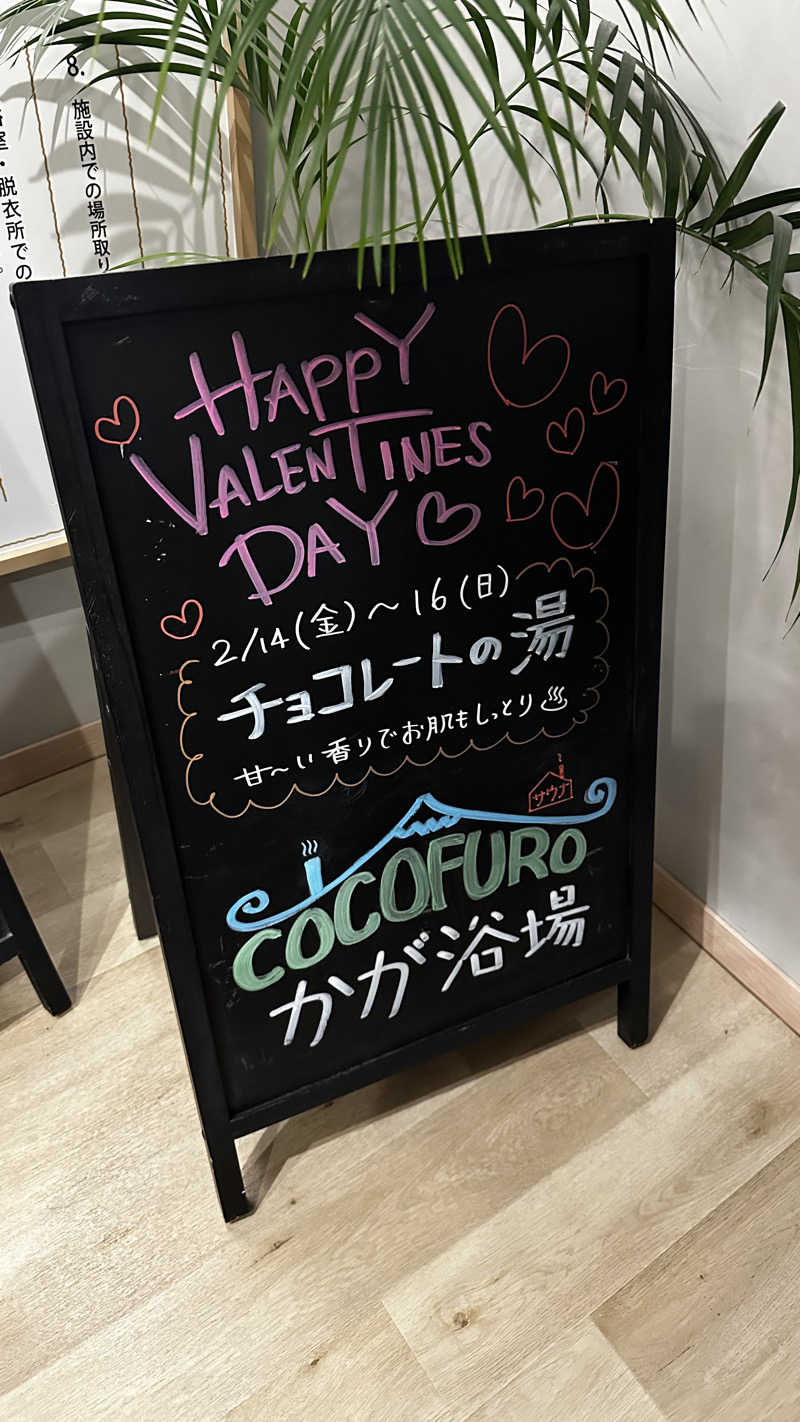 8.
施設内での場所取り
室・脱衣所での
HAPPY
VALENTINES
DAY
2/14(金)～16(日)
チョコレートの湯
甘〜い香りでお肌もしっとり♨
サウナ
COCOFURO
かが浴場